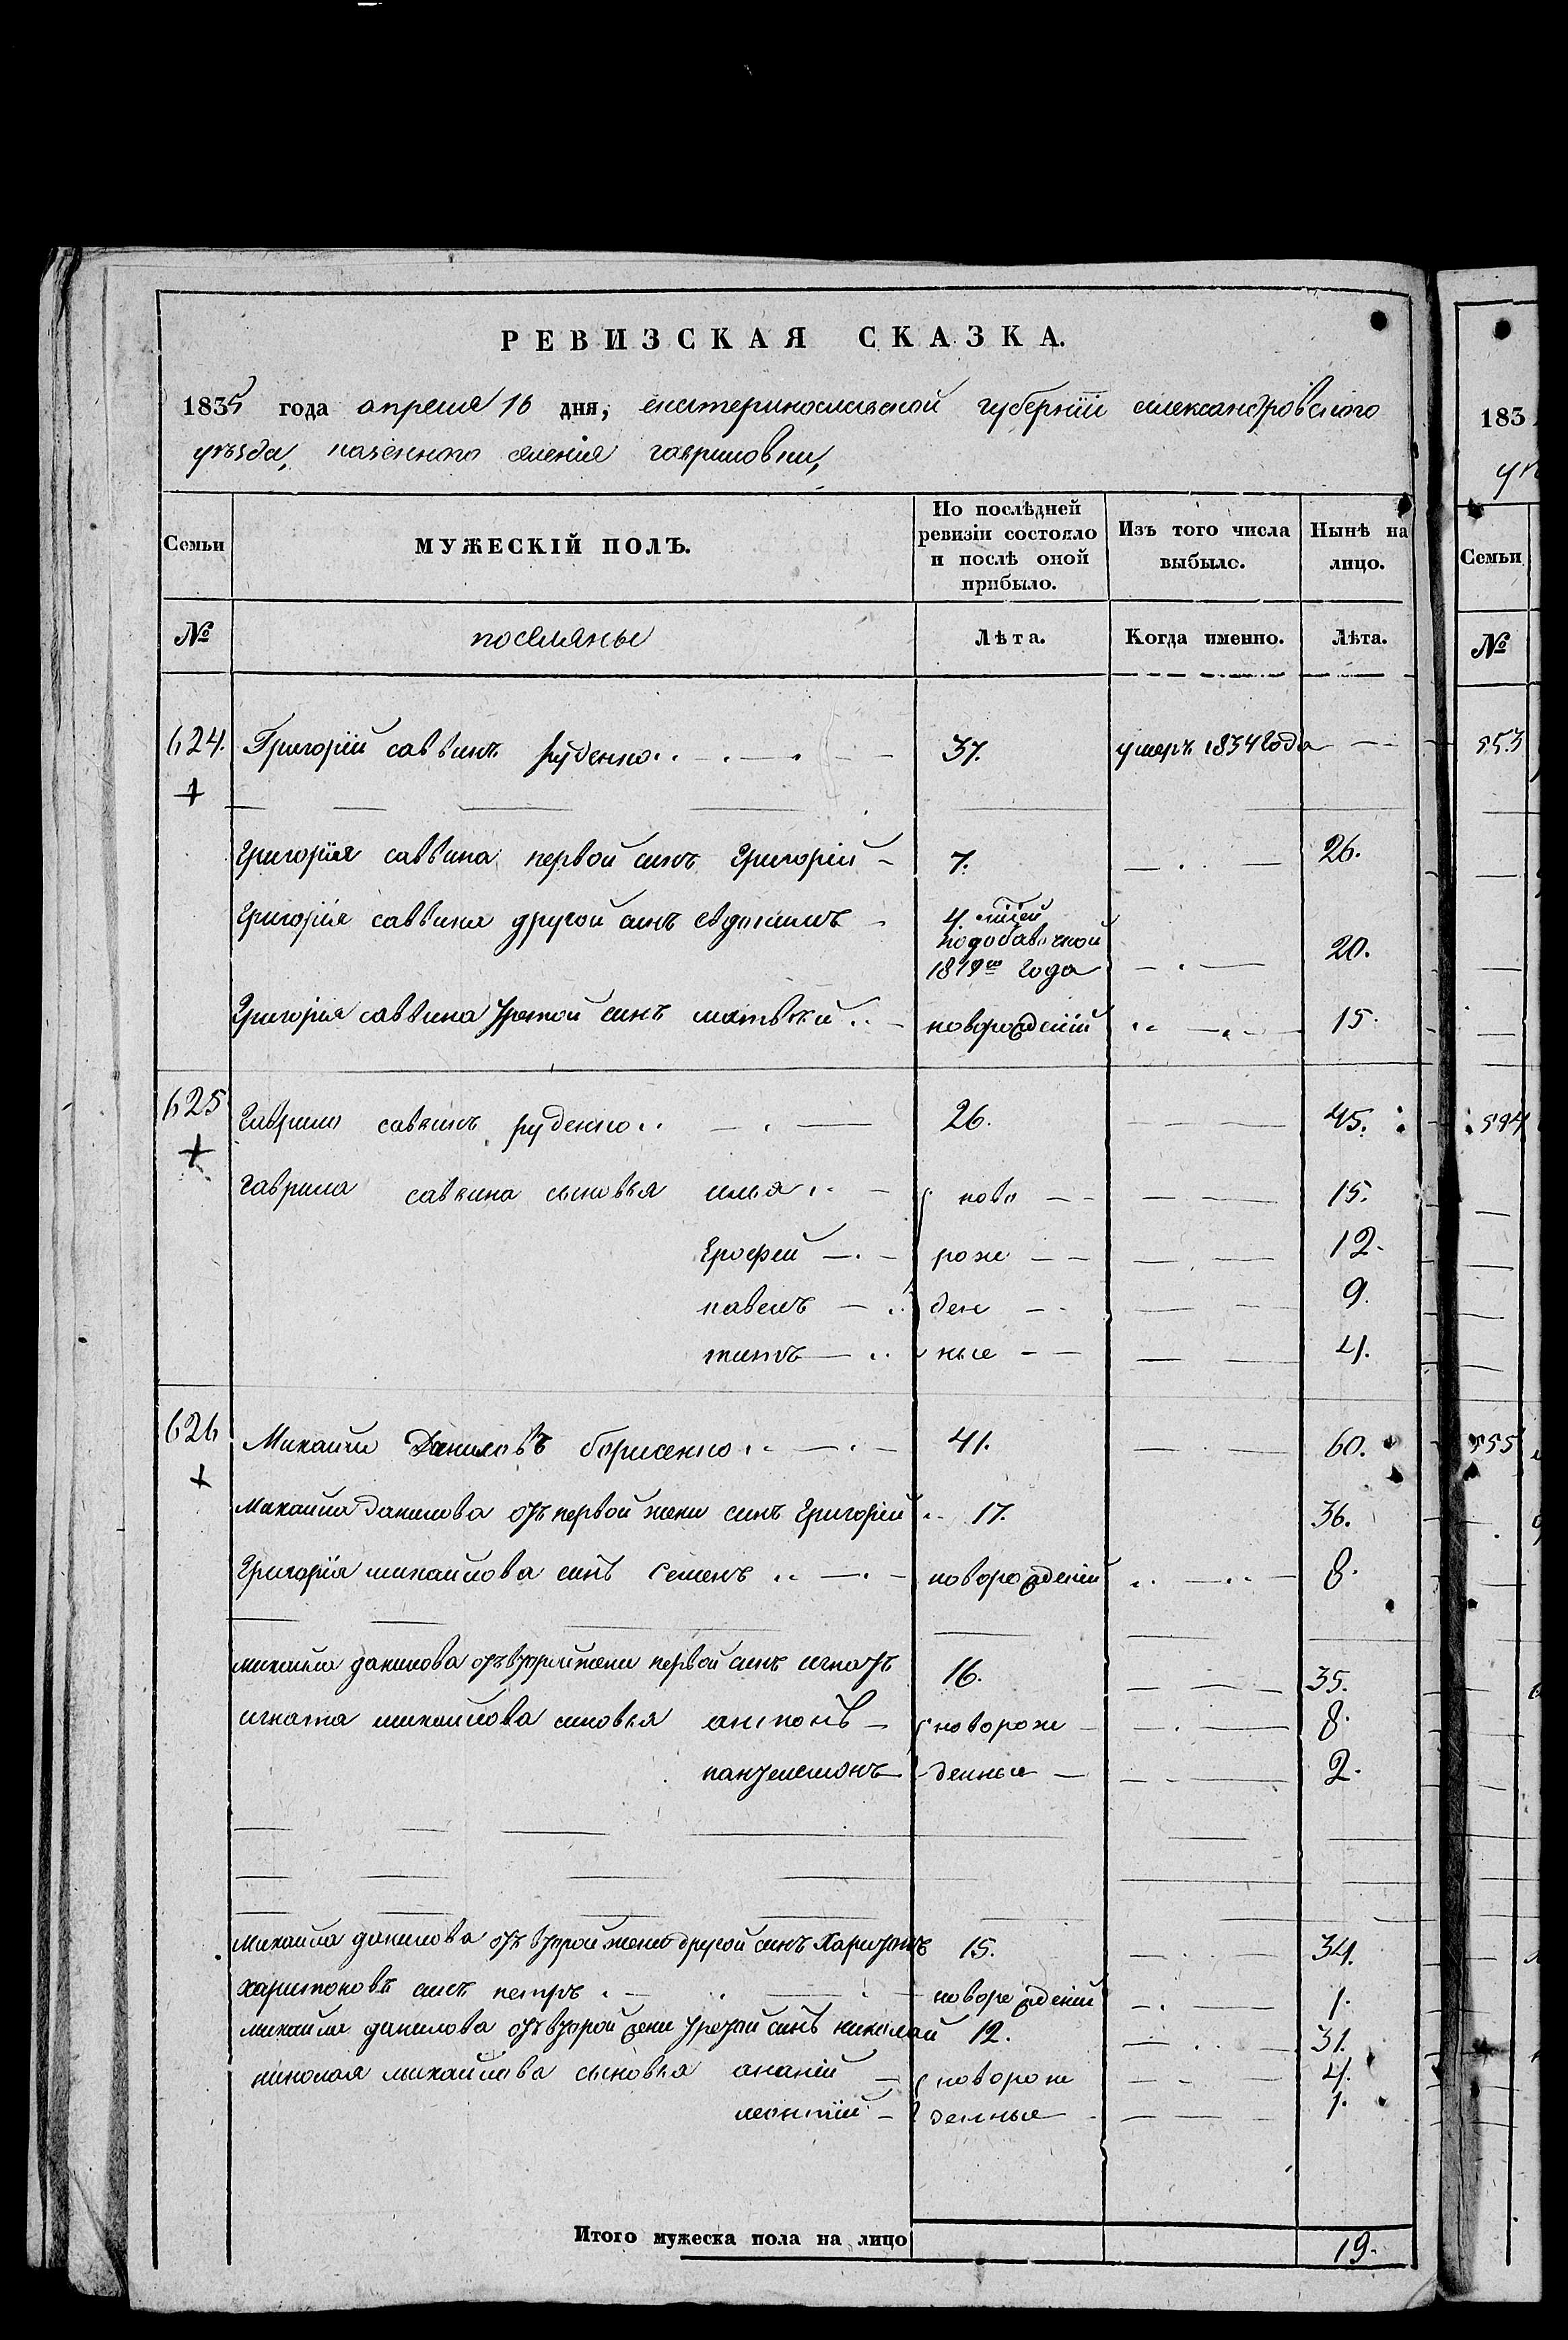 РЕВИЗСКАЯ СКАЗКА.
1835 года апреля 16 дня, екатеринославской губернiи александровского
уѣзда, казенного селенiя гавриловки,
Семьи МУЖЕСКIЙ ПОЛЪ. По послѣдней ревизiи состояло и послѣ оной прибыло. Изъ того числа выбыло. Нынѣ на лицо.
№ поселяны Лѣта. Когда именно. Лѣта.
624. Григорiй саввинъ руденко 37. умеръ 1834 года
Григорiя саввина первой синъ Григорiй 7. 26.
Григорiя саввина другой синъ евдокимъ 4 подобавочной 1819го года 20.
Григорiя саввина третой синъ матвѣй новорожденiй 15.
625 Гаврило саввинъ руденко 26. 45.
Гаврила саввина сыновья илья ново 15.
Ерофей рож 12.
павелъ ден 9.
титъ ные 4.
626 Михайло Даниловъ борисенко 41. 60.
Михайла данилова отъ первой жени синъ Григорiй 17. 36.
Григорiя михайлова синъ Семенъ новорожденiй 8.
михайла данилова отъ второй жени первой синъ игнатъ 16. 35.
игната михайлова сыновья антонъ новорож 8.
пантелемонъ денные 2.
Михайла данилова отъ второй жени другой синъ Харитонъ 15. 34.
харитоновъ синъ петръ новорожденiй 1.
михайла данилова отъ второй жени третой синъ николай 12. 31.
николая михайлова сыновья ананiй новорож 4.
леонтiй денные 1.
Итого мужеска пола на лицо 19.
183
Семьи
№
553
594
555